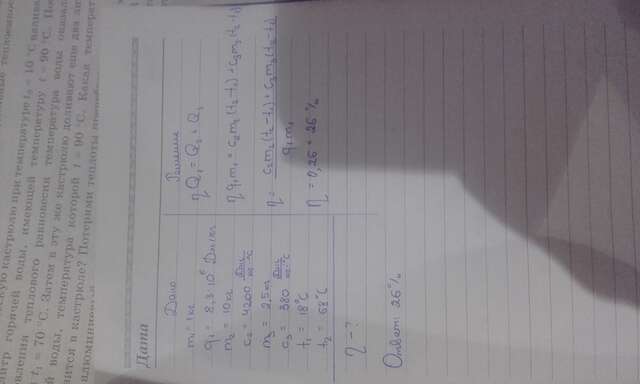 кастрюлю при температуре t₀ = 10 °C
литр горячей воды, имеющей температуру t = 90 °C. По
новления теплового равновесия температура воды оказала
t₁ = 70 °C. Затем в эту же кастрюлю доливают ещё два ли
й воды, температура которой t = 90 °C. Какая температ
вится в кастрюле? Потерями теплоты
Дата
Дано
m₁ = 1кг
q₁ = 8,3·10⁶ Дж/кг
m₂ = 10кг
c₂ = 4200 Дж/кг·°C
m₃ = 2,5кг
c₃ = 380 Дж/кг·°C
t₁ = 18°C
t₂ = 68°C
η - ?
Решение
η Q₁ = Q₂ + Q₃
η q₁m₁ = c₂m₂(t₂-t₁) + c₃m₃(t₂-t₁)
η = c₂m₂(t₂-t₁) + c₃m₃(t₂-t₁) / q₁m₁
η = 0,26 = 26 %
Ответ: 26%